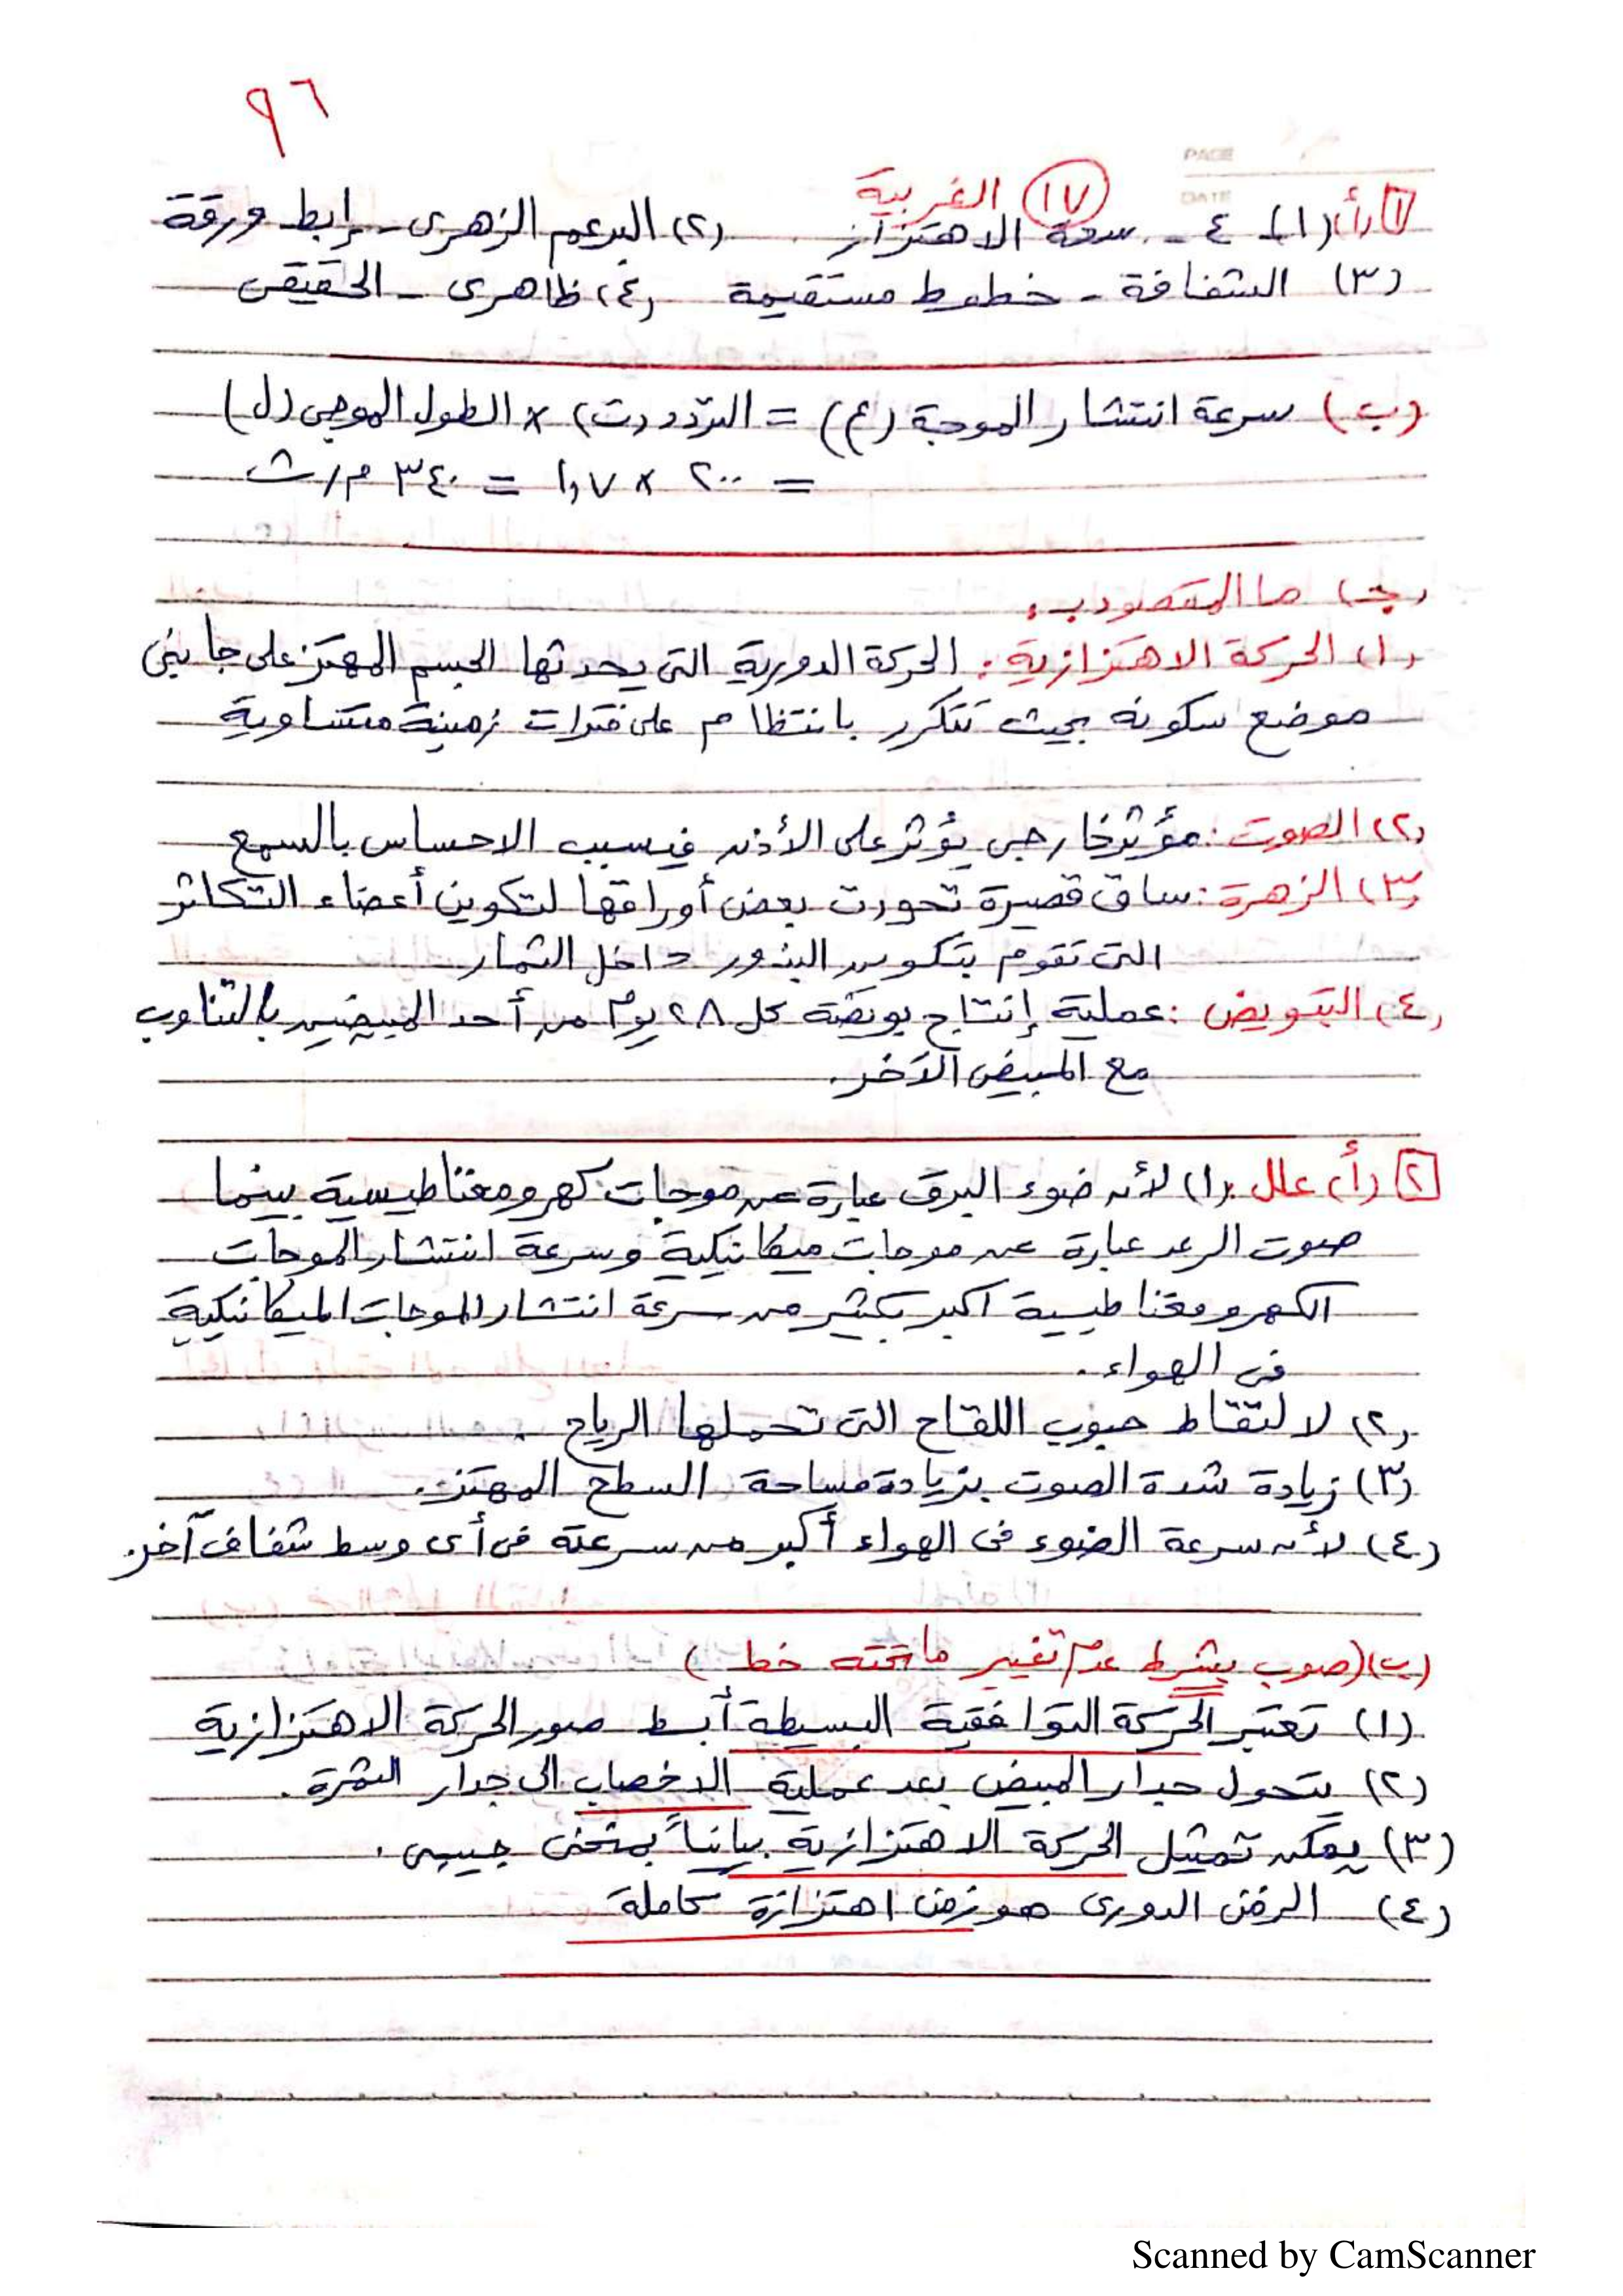 ٩٦
PAGE
DATE
١٧ الغربية
١ (أ) (١) ٤ - سعة الاهتزاز (٢) البرعم الزهرى - إبط ورقة
(٣) الشفافة - خطوط مستقيمة (٤) ظاهرى - الحقيقى
(ب) سرعة انتشار الموجة (ع) = التردد (ت) × الطول الموجى (ل)
= ٢٠٠ × ١,٧ = ٣٤٠ م/ث
(جـ) ما المقصود بـ:
(١) الحركة الاهتزازية: الحركة الدورية التى يحدثها الجسم المهتز على جانبى
موضع سكونه بحيث تتكرر بانتظام على فترات زمنية متساوية
(٢) الصوت: مؤثر خارجى يؤثر على الأذن فيسبب الاحساس بالسمع
(٣) الزهرة: ساق قصيرة تحورت بعض أوراقها لتكوين أعضاء التكاثر
التى تقوم بتكوين البذور داخل الثمار
(٤) التبويض: عملية إنتاج بويضة كل ٢٨ يوم من أحد المبيضين بالتناوب
مع المبيض الآخر.
٢ (أ) علل: (١) لأن ضوء البرق عبارة عن موجات كهرومغناطيسية بينما
صوت الرعد عبارة عن موجات ميكانيكية وسرعة انتشار الموجات
الكهرومغناطيسية اكبر بكثير من سرعة انتشار الموجات الميكانيكية
فى الهواء.
(٢) لالتقاط حبوب اللقاح التى تحملها الرياح.
(٣) زيادة شدة الصوت بزيادة مساحة السطح المهتز.
(٤) لأن سرعة الضوء فى الهواء أكبر من سرعته فى أى وسط شفاف آخر.
(ب) (صوب بشرط عدم تغيير ما تحته خط)
(١) تعتبر الحركة التوافقية البسيطة أبسط صور الحركة الاهتزازية
(٢) يتحول جدار المبيض بعد عملية الاخصاب الى جدار الثمرة.
(٣) يمكن تمثيل الحركة الاهتزازية بيانياً بمنحنى جيبى.
(٤) الزمن الدورى هو زمن اهتزازة كاملة
Scanned by CamScanner